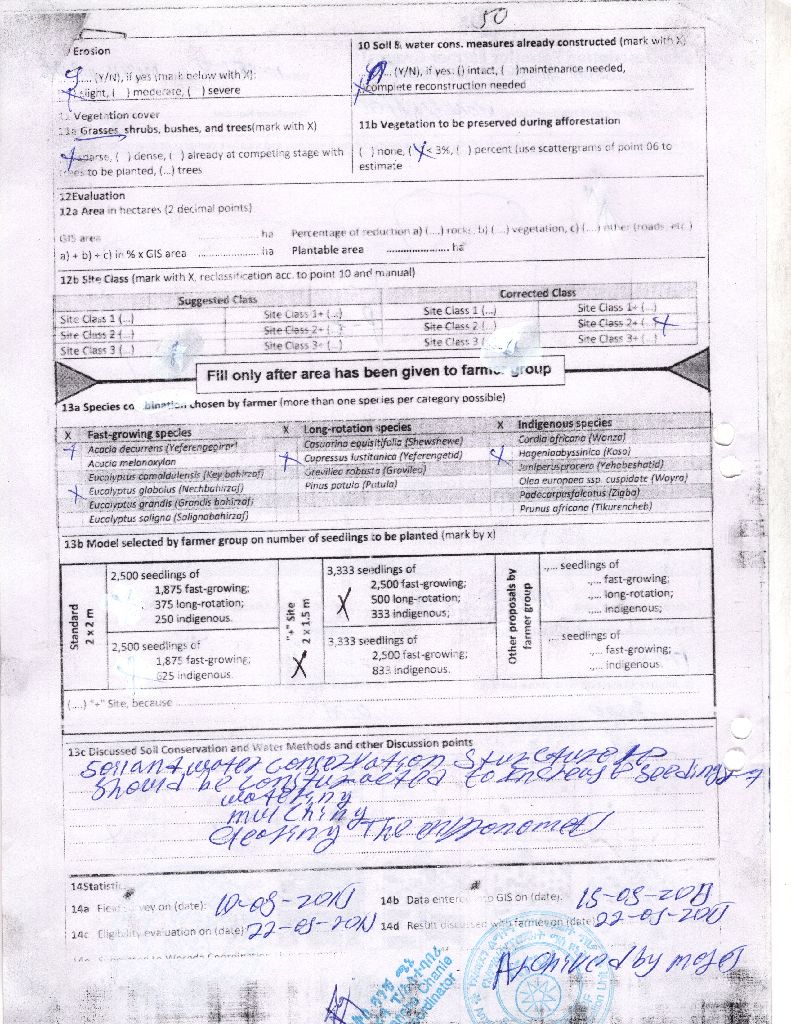 50
Erosion
10 Soil & water cons. measures already constructed (mark with X)
.... (Y/N), if yes (mark below with X):
... (Y/N), if yes. () intact, ( )maintenance needed,
slight, ( ) moderate, ( ) severe
X complete reconstruction needed
Vegetation cover
11a Grasses, shrubs, bushes, and trees(mark with X)
11b Vegetation to be preserved during afforestation
sparse, ( ) dense, ( ) already at competing stage with
( ) none, (X < 3%, ( ) percent (use scattergrams of point 06 to
trees to be planted, (...) trees
estimate
12Evaluation
12a Area in hectares (2 decimal points)
GIS area .................. ha Percentage of reduction a) (....) rocks, b) (....) vegetation, c) (....) other (roads, etc.)
a) + b) + c) in % x GIS area .................. ha Plantable area .................. ha
12b Site Class (mark with X, reclassification acc. to point 10 and manual)
Suggested Class
Corrected Class
Site Class 1 (...) Site Class 1+ (...) Site Class 1 (...) Site Class 1+ (...)
Site Class 2 (...) Site Class 2+ (...) Site Class 2 (...) Site Class 2+ (...) X
Site Class 3 (...) Site Class 3+ (...) Site Class 3 (...) Site Class 3+ (...)
Fill only after area has been given to farmer group
13a Species combination chosen by farmer (more than one species per category possible)
X Fast-growing species
X Acacia decurrens (Yeferengegirar)
Acacia melonoxylon
Eucalyptus camaldulensis (Key bahirzaf)
X Eucalyptus globolus (Nechbahirzaf)
Eucalyptus grandis (Grandis bahirzaf)
Eucalyptus saligna (Salignabahirzaf)
X Long-rotation species
Casuarina equisitifolia (Shewshewe)
X Cupressus lustitanica (Yeferengetid)
Grevillea robusta (Gravilea)
Pinus patula (Patula)
X Indigenous species
Cordia africana (Wanza)
X Hageniaabyssinica (Koso)
Juniperusprocera (Yehabeshatid)
Olea europaea ssp. cuspidate (Wayra)
Podocarpusfalcatus (Zigba)
Prunus africana (Tikurencheb)
13b Model selected by farmer group on number of seedlings to be planted (mark by x)
Standard
2 x 2 m
2,500 seedlings of
1,875 fast-growing;
375 long-rotation;
250 indigenous.
2,500 seedlings of
1,875 fast-growing;
625 indigenous.
"+" Site
2 x 1.5 m
X
3,333 seedlings of
2,500 fast-growing;
X 500 long-rotation;
333 indigenous;
3,333 seedlings of
2,500 fast-growing;
833 indigenous.
Other proposals by
farmer group
..... seedlings of
..... fast-growing;
..... long-rotation;
..... indigenous;
..... seedlings of
..... fast-growing;
..... indigenous.
(....) "+" Site, because
13c Discussed Soil Conservation and Water Methods and other Discussion points
Soil and water conservation structure
should be constructed to increase seedlings
watering
mulching
14Statistic
14a Field survey on (date): 10-09-2011
14b Data entered into GIS on (date). 15-09-2011
14c Eligibility evaluation on (date) 22-09-2011
14d Result discussed with farmer on (date) 22-09-2011
Archived by